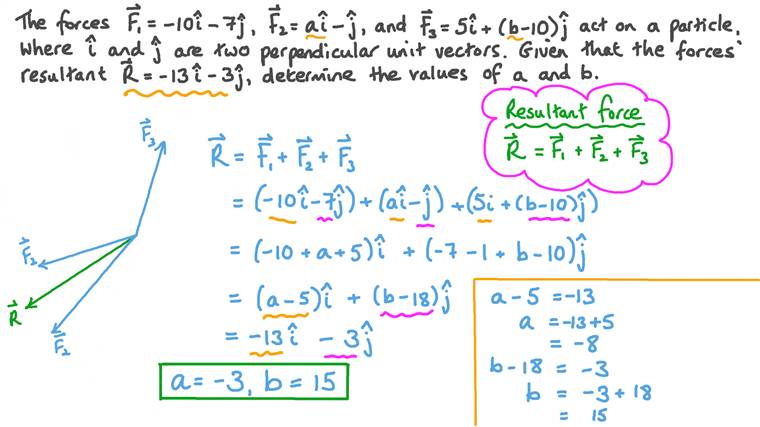 The forces F⃗₁ = -10î - 7ĵ, F⃗₂ = aî - ĵ, and F⃗₃ = 5î + (b-10)ĵ act on a particle,
where î and ĵ are two perpendicular unit vectors. Given that the forces'
resultant R⃗ = -13î - 3ĵ, determine the values of a and b.
Resultant force
R⃗ = F⃗₁ + F⃗₂ + F⃗₃
F⃗₃
F⃗₂
R⃗
F⃗₂
R⃗ = F⃗₁ + F⃗₂ + F⃗₃
= (-10î - 7ĵ) + (aî - ĵ) + (5i + (b-10)ĵ)
= (-10 + a + 5)î + (-7 - 1 + b - 10)ĵ
= (a - 5)î + (b - 18)ĵ
= -13î - 3ĵ
a = -3, b = 15
a - 5 = -13
a = -13 + 5
= -8
b - 18 = -3
b = -3 + 18
= 15